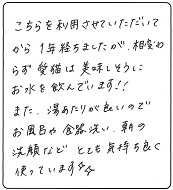 こちらを利用させていただいて
から1年経ちましたが、相変わ
らず愛猫は美味しそうに
お水を飲んでいます!!
また、湯あたりが良いので
お風呂や食器洗い、朝の
洗顔など とても気持ち良く
使っています